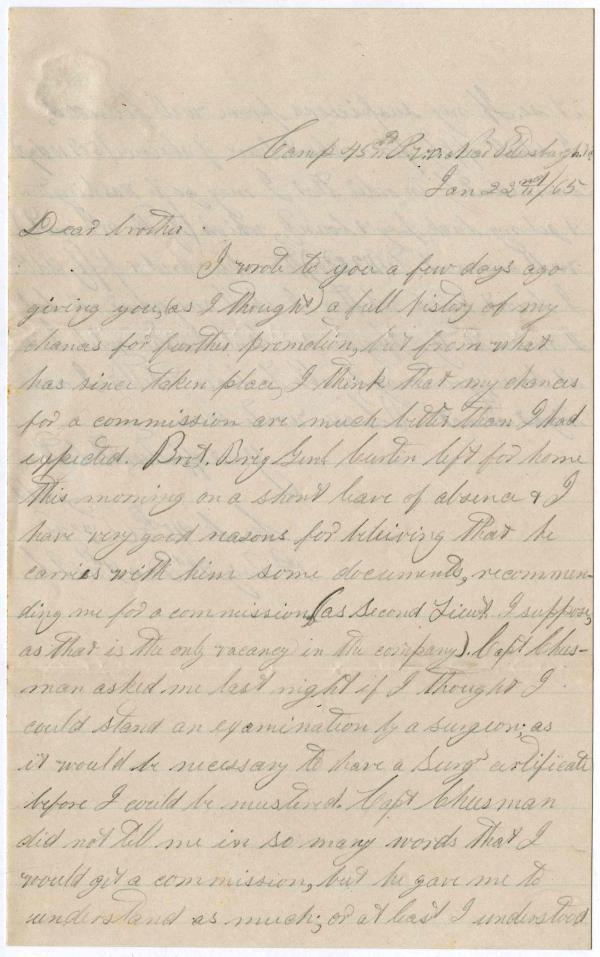 Camp 45th P.V. Near Petersburg Va
Jan 22nd/65
Dear brother.
I wrote to you a few days ago
giving you, (as I thought) a full history of my
chances for further promotion, but from what
has since taken place, I think that my chances
for a commission are much better than I had
expected. Brvt. Brig Genl Curtin left for home
this morning on a short leave of absence & I
have very good reasons for beleiving that he
carries with him some documents, recommen-
ding me for a commission, (as Second Lieut. I suppose,
as that is the only vacancy in the company). Capt Chees-
man asked me last night if I thought I
could stand an examination by a surgeon; as
it would be necessary to have a Surg's certificate
before I could be mustered. Capt Cheesman
did not tell me in so many words that I
would get a commission, but he gave me to
understand as much; or at least I understood